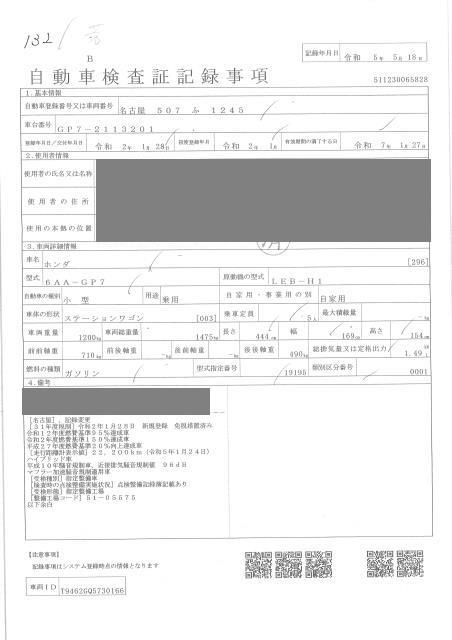 132
B
記録年月日 令和 5年 5月18日
自動車検査証記録事項
511230065828
1.基本情報
自動車登録番号又は車両番号 名古屋 507 ふ 1245
車台番号 GP7-2113201
登録年月日/交付年月日 令和 2年 1月28日 初度登録年月 令和 2年 1月 有効期間の満了する日 令和 7年 1月27日
2.使用者情報
使用者の氏名又は名称
使用者の住所
使用の本拠の位置
3.車両詳細情報
車名 ホンダ [296]
型式 6AA-GP7 原動機の型式 LEB-H1
自動車の種別 小型 用途 乗用 自家用・事業用の別 自家用
車体の形状 ステーションワゴン [003] 乗車定員 5人 最大積載量 -kg
車両重量 1200kg 車両総重量 1475kg 長さ 444cm 幅 169cm 高さ 154cm
前前軸重 710kg 前後軸重 -kg 後前軸重 -kg 後後軸重 490kg 総排気量又は定格出力 1.49L
燃料の種類 ガソリン 型式指定番号 19195 類別区分番号 0001
4.備考
[名古屋],記録変更
[31年度規制]令和2年1月28日 新規登録 免税措置済み
令和12年度燃費基準95%達成車
令和2年度燃費基準150%達成車
平成27年度燃費基準20%向上達成車
[走行距離計表示値]22,200km(令和5年1月24日)
ハイブリッド車
平成10年騒音規制車、近接排気騒音規制値 96dB
マフラー加速騒音規制適用車
[受検種別]指定整備車
[検査時の点検整備実施状況]点検整備記録簿記載あり
[受検形態]指定整備工場
[整備工場コード]51-05575
以下余白
【注意事項】
記録事項はシステム登録時点の情報となります
車両ID T9462GQ5730166